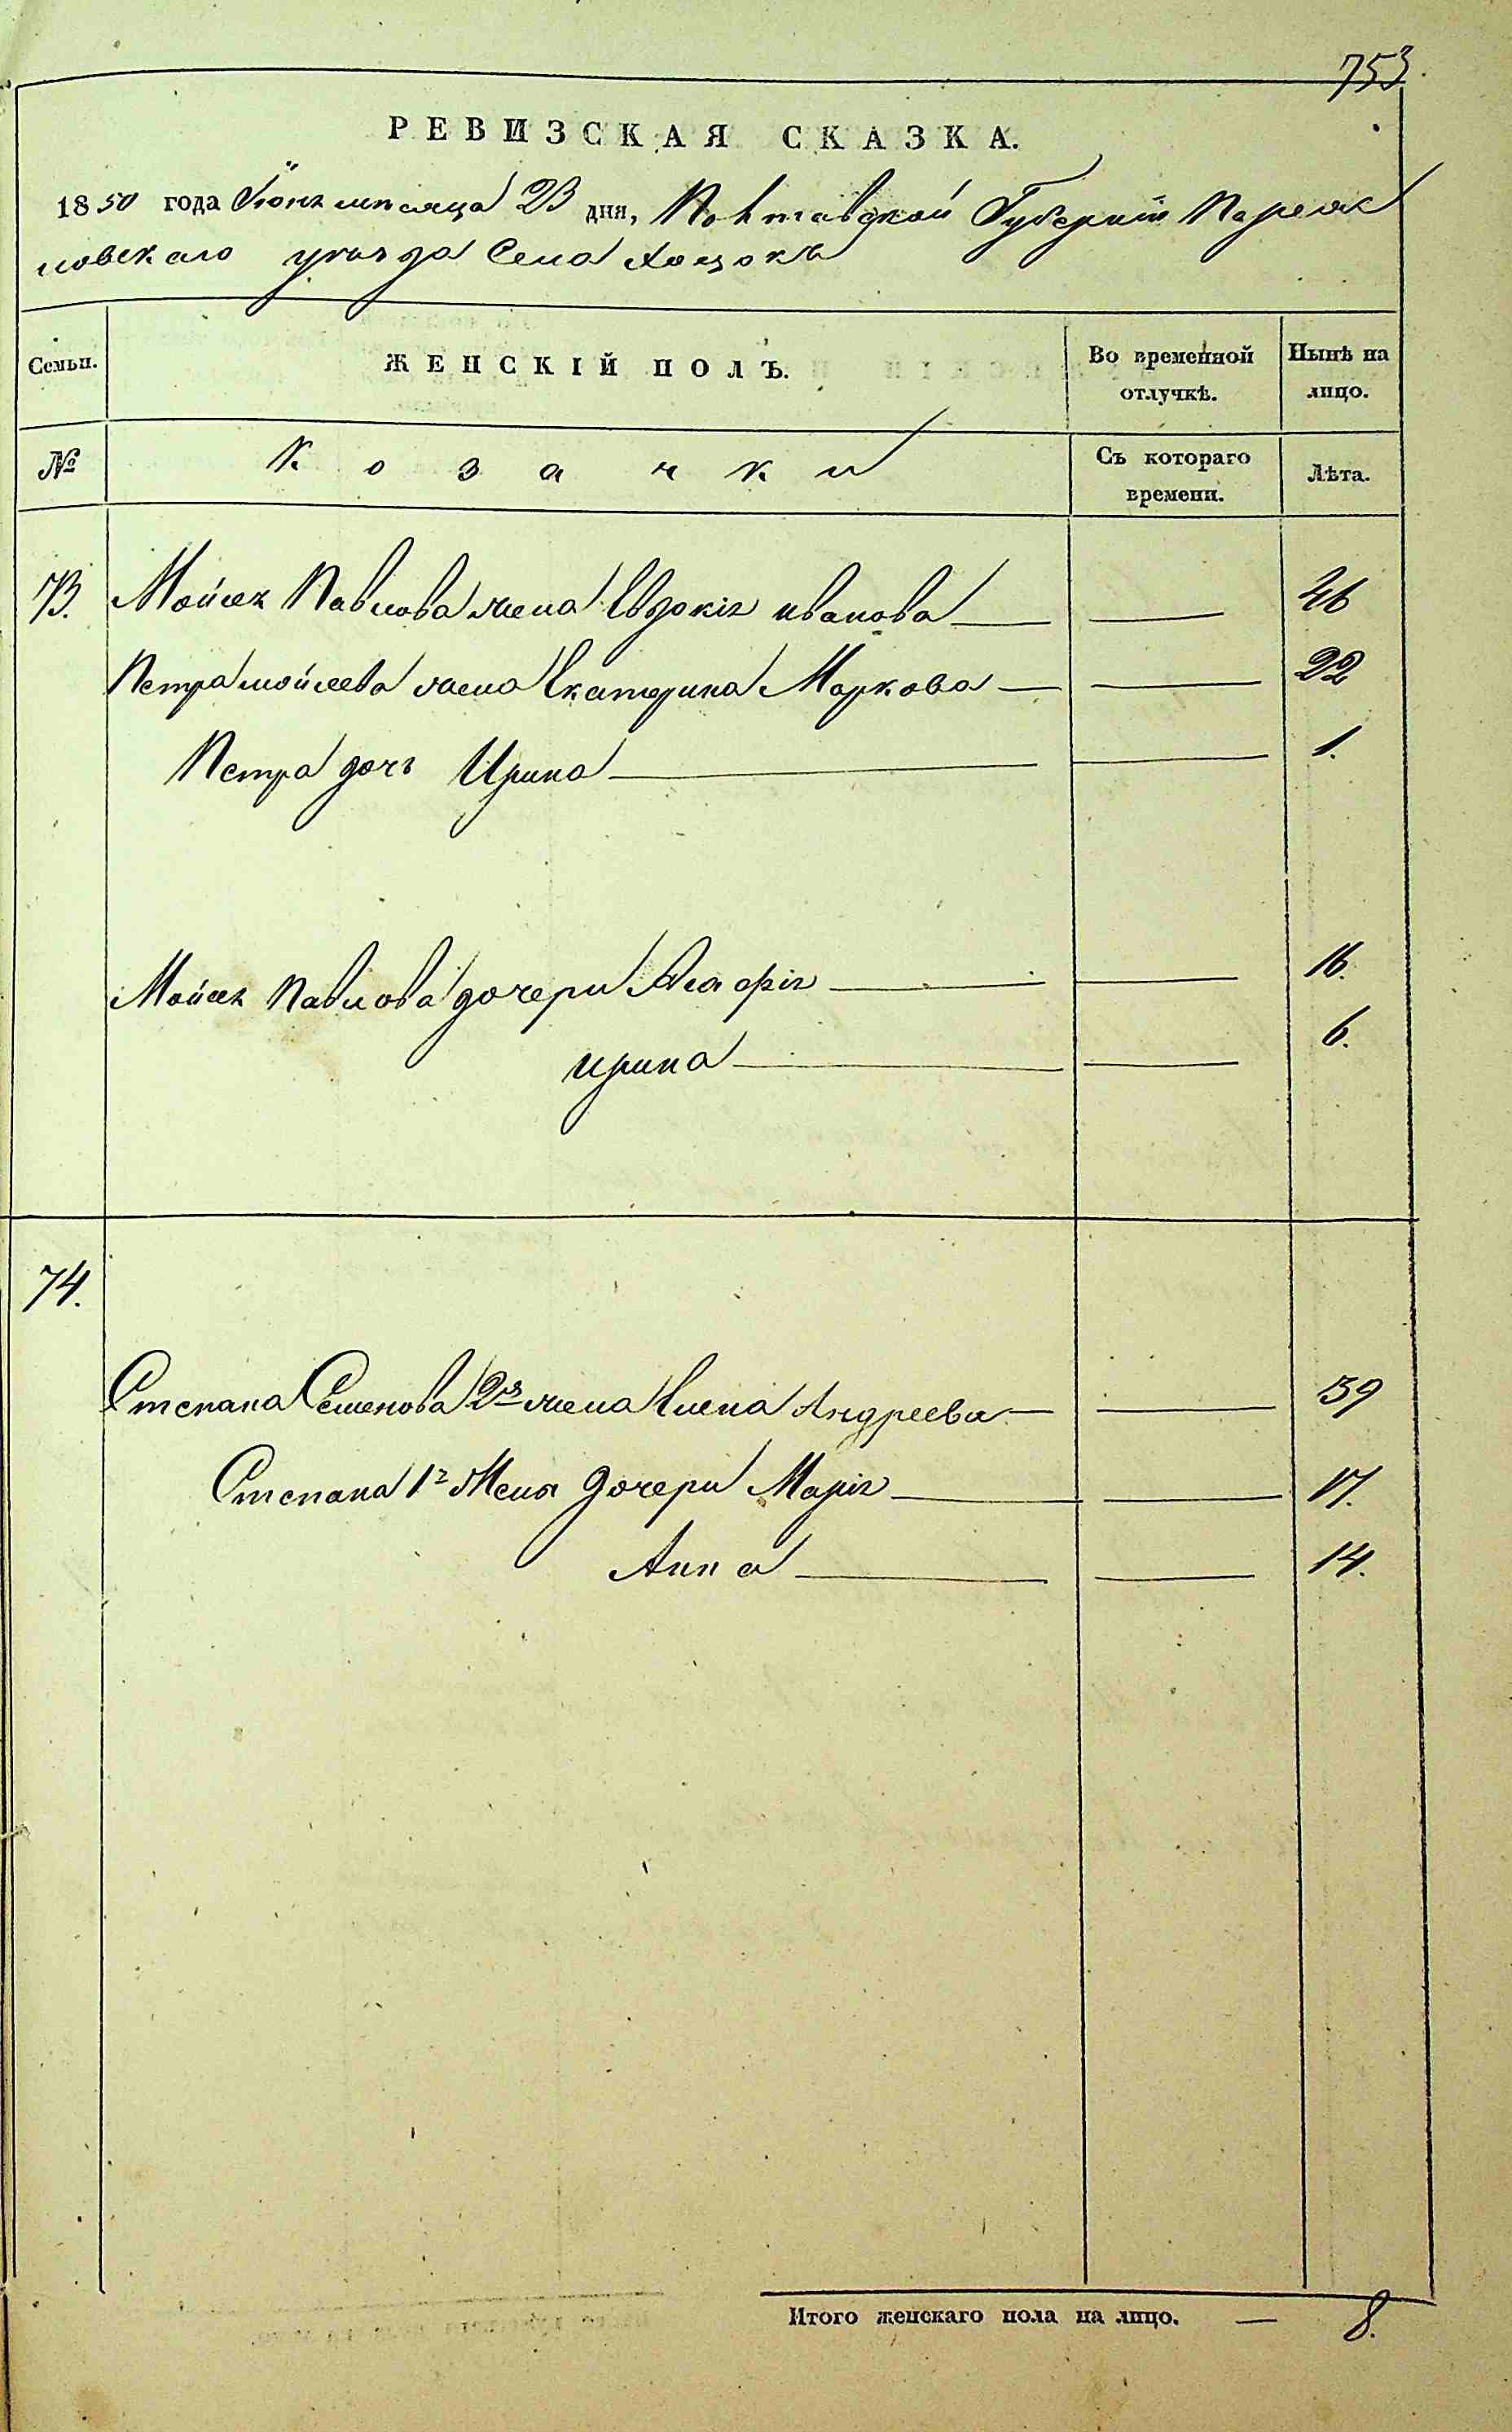 753.
РЕВИЗСКАЯ СКАЗКА.
1850 года Іюня мѣсяца 23 дня, Полтавской Губерніи Переяс
ловскаго уѣзда Села Хоцокъ
Семьи. ЖЕНСКІЙ ПОЛЪ. Во временной отлучкѣ. Нынѣ на лицо.
№ Козачки Съ котораго времени. Лѣта.
73. Мойсея Павлова жена Евдокія иванова — — 46
Петра мойсеева жена Екатерина Маркова — — 22
Петра дочь Ирина — — 1.
Мойсея Павлова дочери Агафія — — 16.
ирина — — 6.
74.
Степана Семенова 2я жена Елена Андреева — — 39
Степана 1й Жены дочери Марія — — 17.
Анна — — 14.
Итого женскаго пола на лицо. — 8.